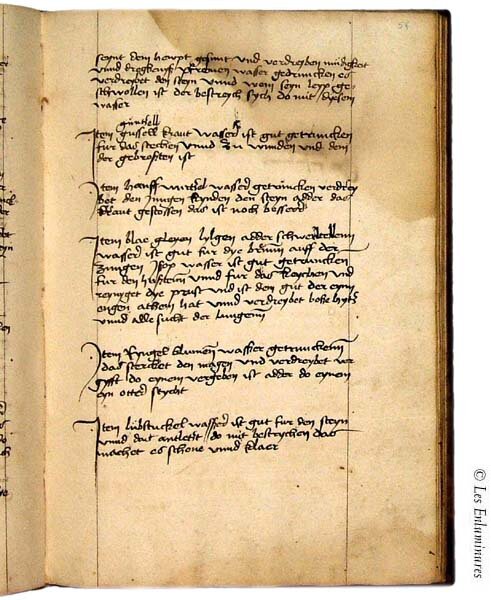 54
seynt dem heupt gesunt und verdreyben mudigkeit
vnnd wasser getruncken es
verdreybet den steyn vnnd wem seyn leyp ge-
schwollen ist der bestreych sych do mit diesem
wasser
gunsell
Item gussell kraut wasser ist gut getruncken
fur das stechen vnnd zu wunden und dem
der gebrosten ist
Item hanff wurtzel wasser getruncken verdrey
bet den jungen kynden den steyn adder das
kraut gestossen das ist noch besser
Item blae lylgen adder
wasser ist gut fur dye auff der
zungen Isop wasser ist gut getruncken
fur den husten vnnd fur das keychen vnd
reyniget dye prust vnd ist dem gut der eyn
engen athem hat vnnd verdreybet bose hytz
vnnd alle sucht der lungenn
Item Ryngel blumen wasser getrunckenn
das stercket den magen vnd verdreybet ver
gyfft do eynem vergeben ist adder do eynen
eyn otter stycht
Item lubstuckel wasser ist gut fur den steyn
vnnd dat antlitz do mit bestrychen das
machet es schone vnnd klaer
© Les Enluminures